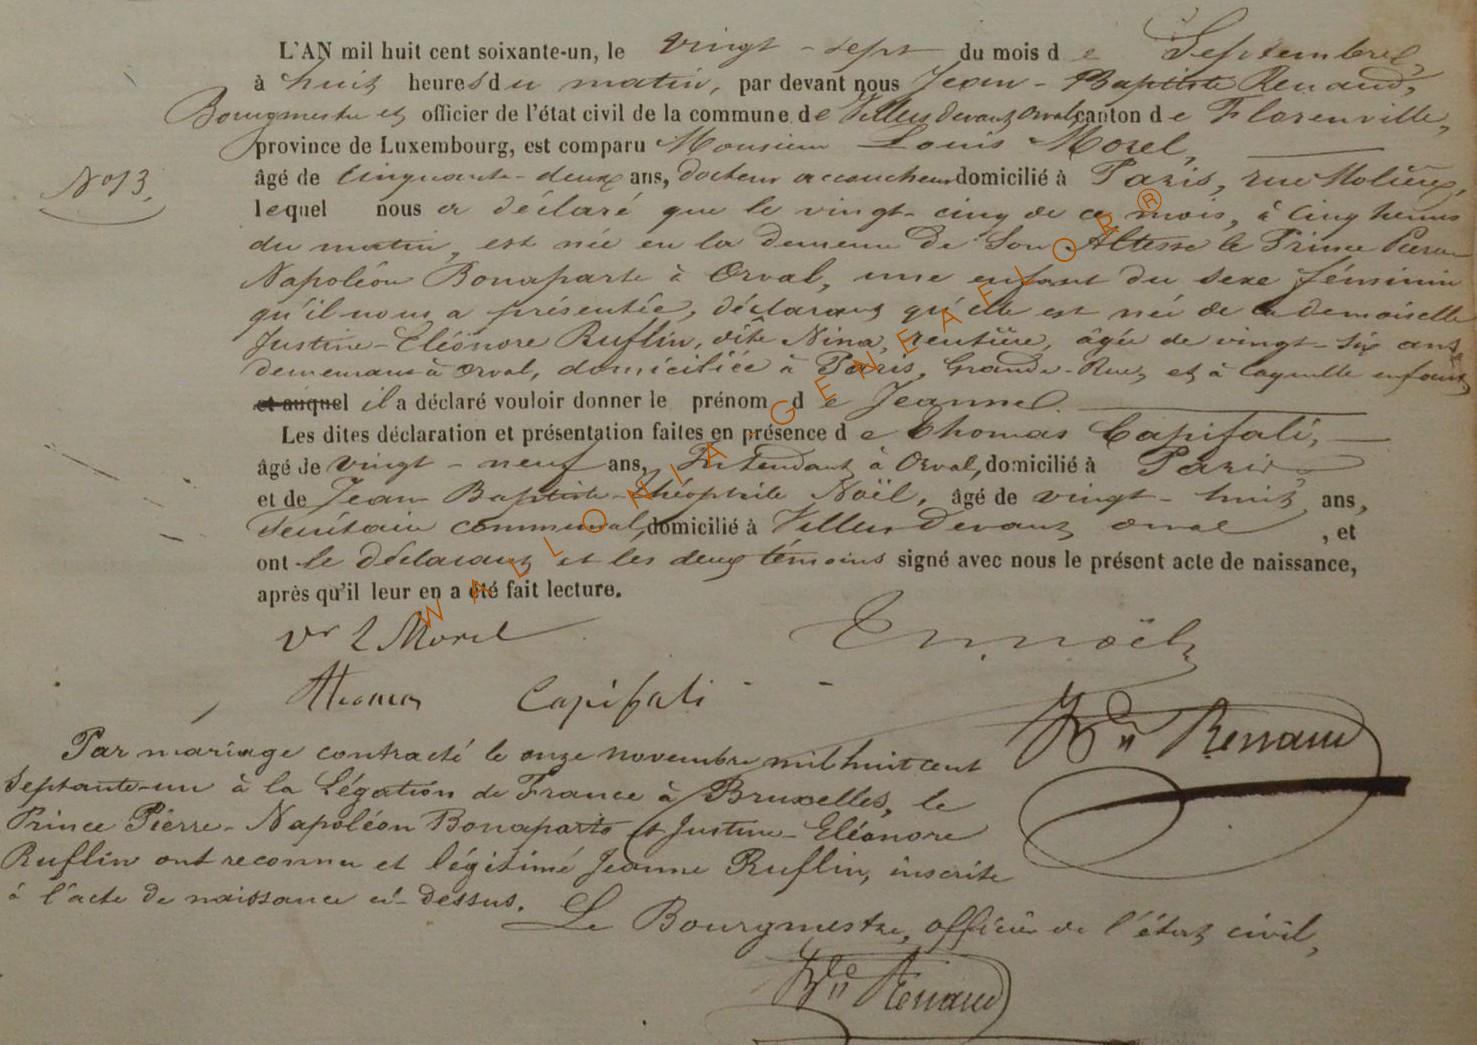 L'AN mil huit cent soixante-un, le vingt-sept du mois de Septembre,
à huit heures du matin, par devant nous Jean-Baptiste Renaud,
Bourgmestre et officier de l'état civil de la commune de Villers devant orval canton de Florenville,
province de Luxembourg, est comparu Monsieur Louis Morel,
N° 13.
âgé de Cinquante-deux ans, docteur accoucheur domicilié à Paris, rue Molière,
lequel nous a déclaré que le vingt-cinq de ce mois, à Cinq heures
du matin, est née en la demeure de Son Altesse le Prince Pierre
Napoléon Bonaparte à Orval, une enfant du sexe féminin
qu'il nous a présentée, déclarant qu'elle est née de demoiselle
Justine-Eléonore Ruflin, dite Nina, rentière, âgée de vingt-six ans,
demeurant à Orval, domiciliée à Paris, Grande-Rue, et à laquelle enfant
et auquel il a déclaré vouloir donner le prénom de Jeanne.
Les dites déclaration et présentation faites en présence de Thomas Capifali,
âgé de vingt-neuf ans, Intendant à Orval, domicilié à Paris
et de Jean Baptiste-Théophile Noël, âgé de vingt-huit ans,
Secrétaire communal, domicilié à Villers devant orval, et
ont le déclarant et les deux témoins signé avec nous le présent acte de naissance,
après qu'il leur en a été fait lecture.
L Morel
Noël
Thomas Capifali
Renaud
Par mariage contracté le onze novembre mil huit cent
Septante-un à la Légation de France à Bruxelles, le
Prince Pierre-Napoléon Bonaparte et Justine-Eléonore
Ruflin ont reconnu et légitimé Jeanne Ruflin, inscrite
à l'acte de naissance ci-dessus.
Le Bourgmestre, officier de l'état civil,
Renaud
WALLONIA-GENEAFLOR®